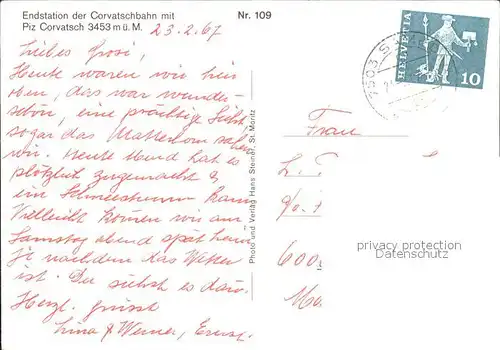 Endstation der Corvatschbahn mit
Piz Corvatsch 3453 m ü. M.
Nr. 109
23.2.67
Liebes Grosi,
Heute waren wir hier
oben, das war wunder-
schön, eine prächtige Sicht
sogar das Matterhorn sahen
wir. Heute Abend hat es
plötzlich zugemacht &
ein Schneesturm kam
Vielleicht können wir am
Samstag abend spät heim
Je nachdem das Wetter
ist. Du siehst es dann.
Herzl. grüsst
Lina & Werner,
Photo und Verlag Hans Steiner, St. Moritz
HELVETIA
10
7503 S
Frau
L.
600
Mo
privacy protection
Datenschutz